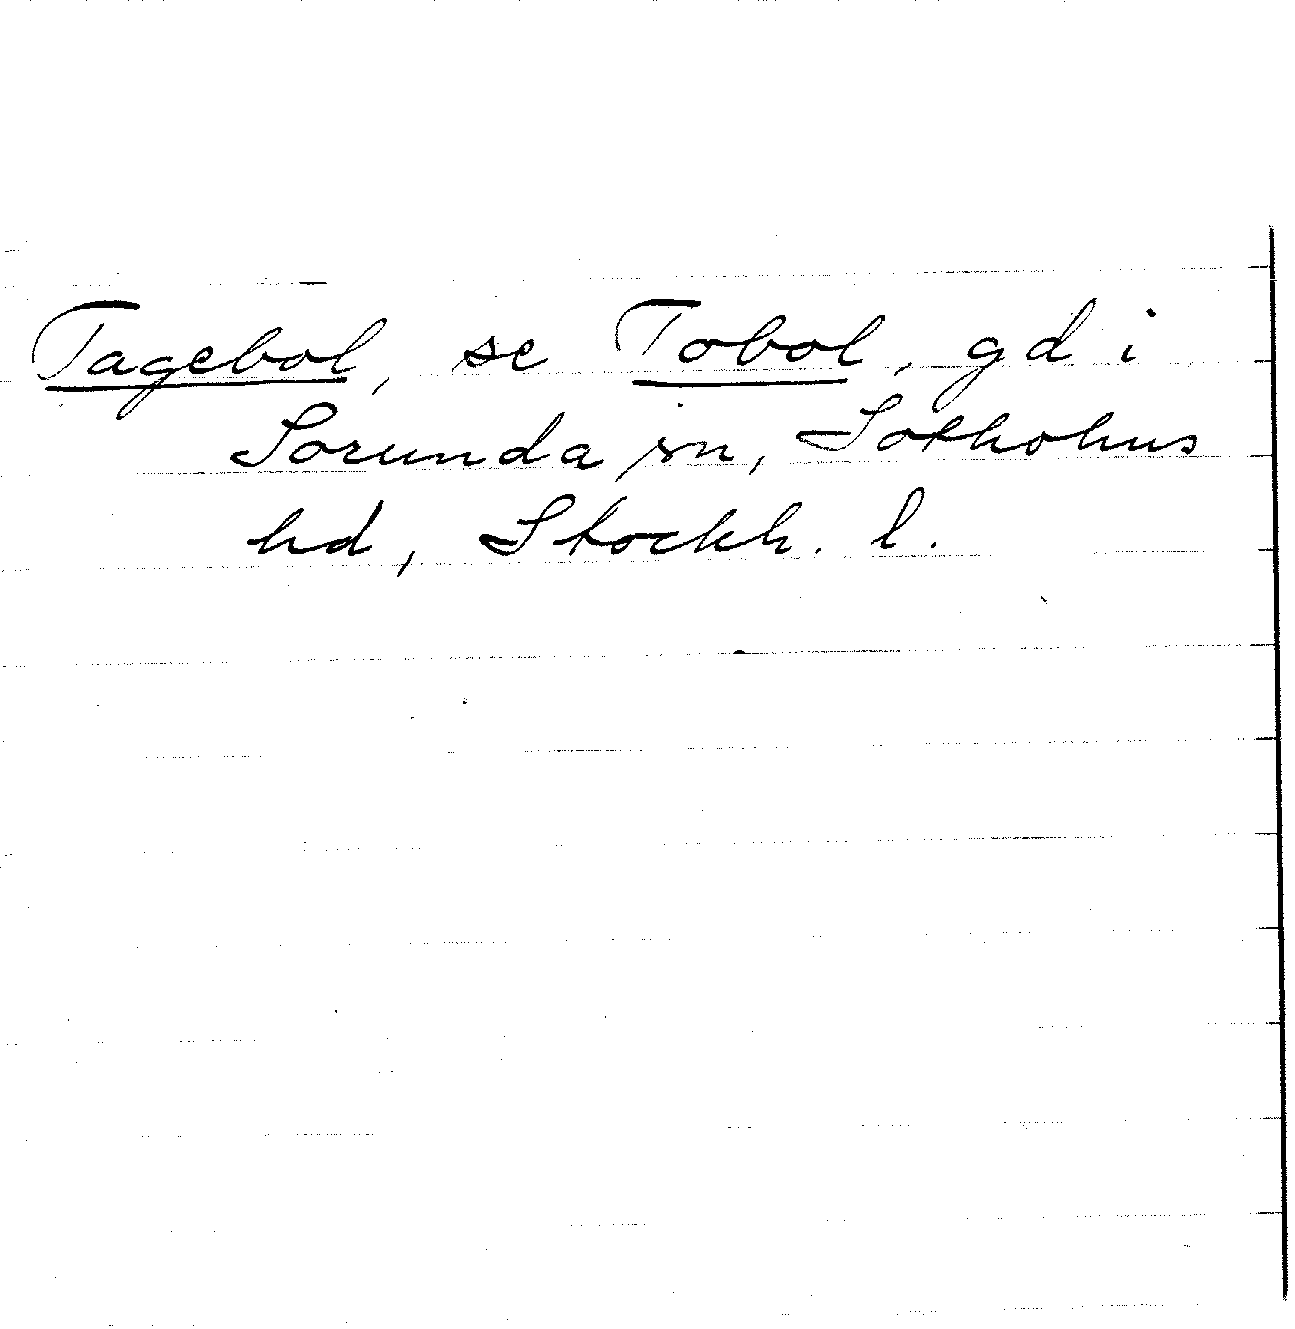 Tagebol, se Tobol, gd i
Sorunda sn, Sotholms
hd, Stockh. l.